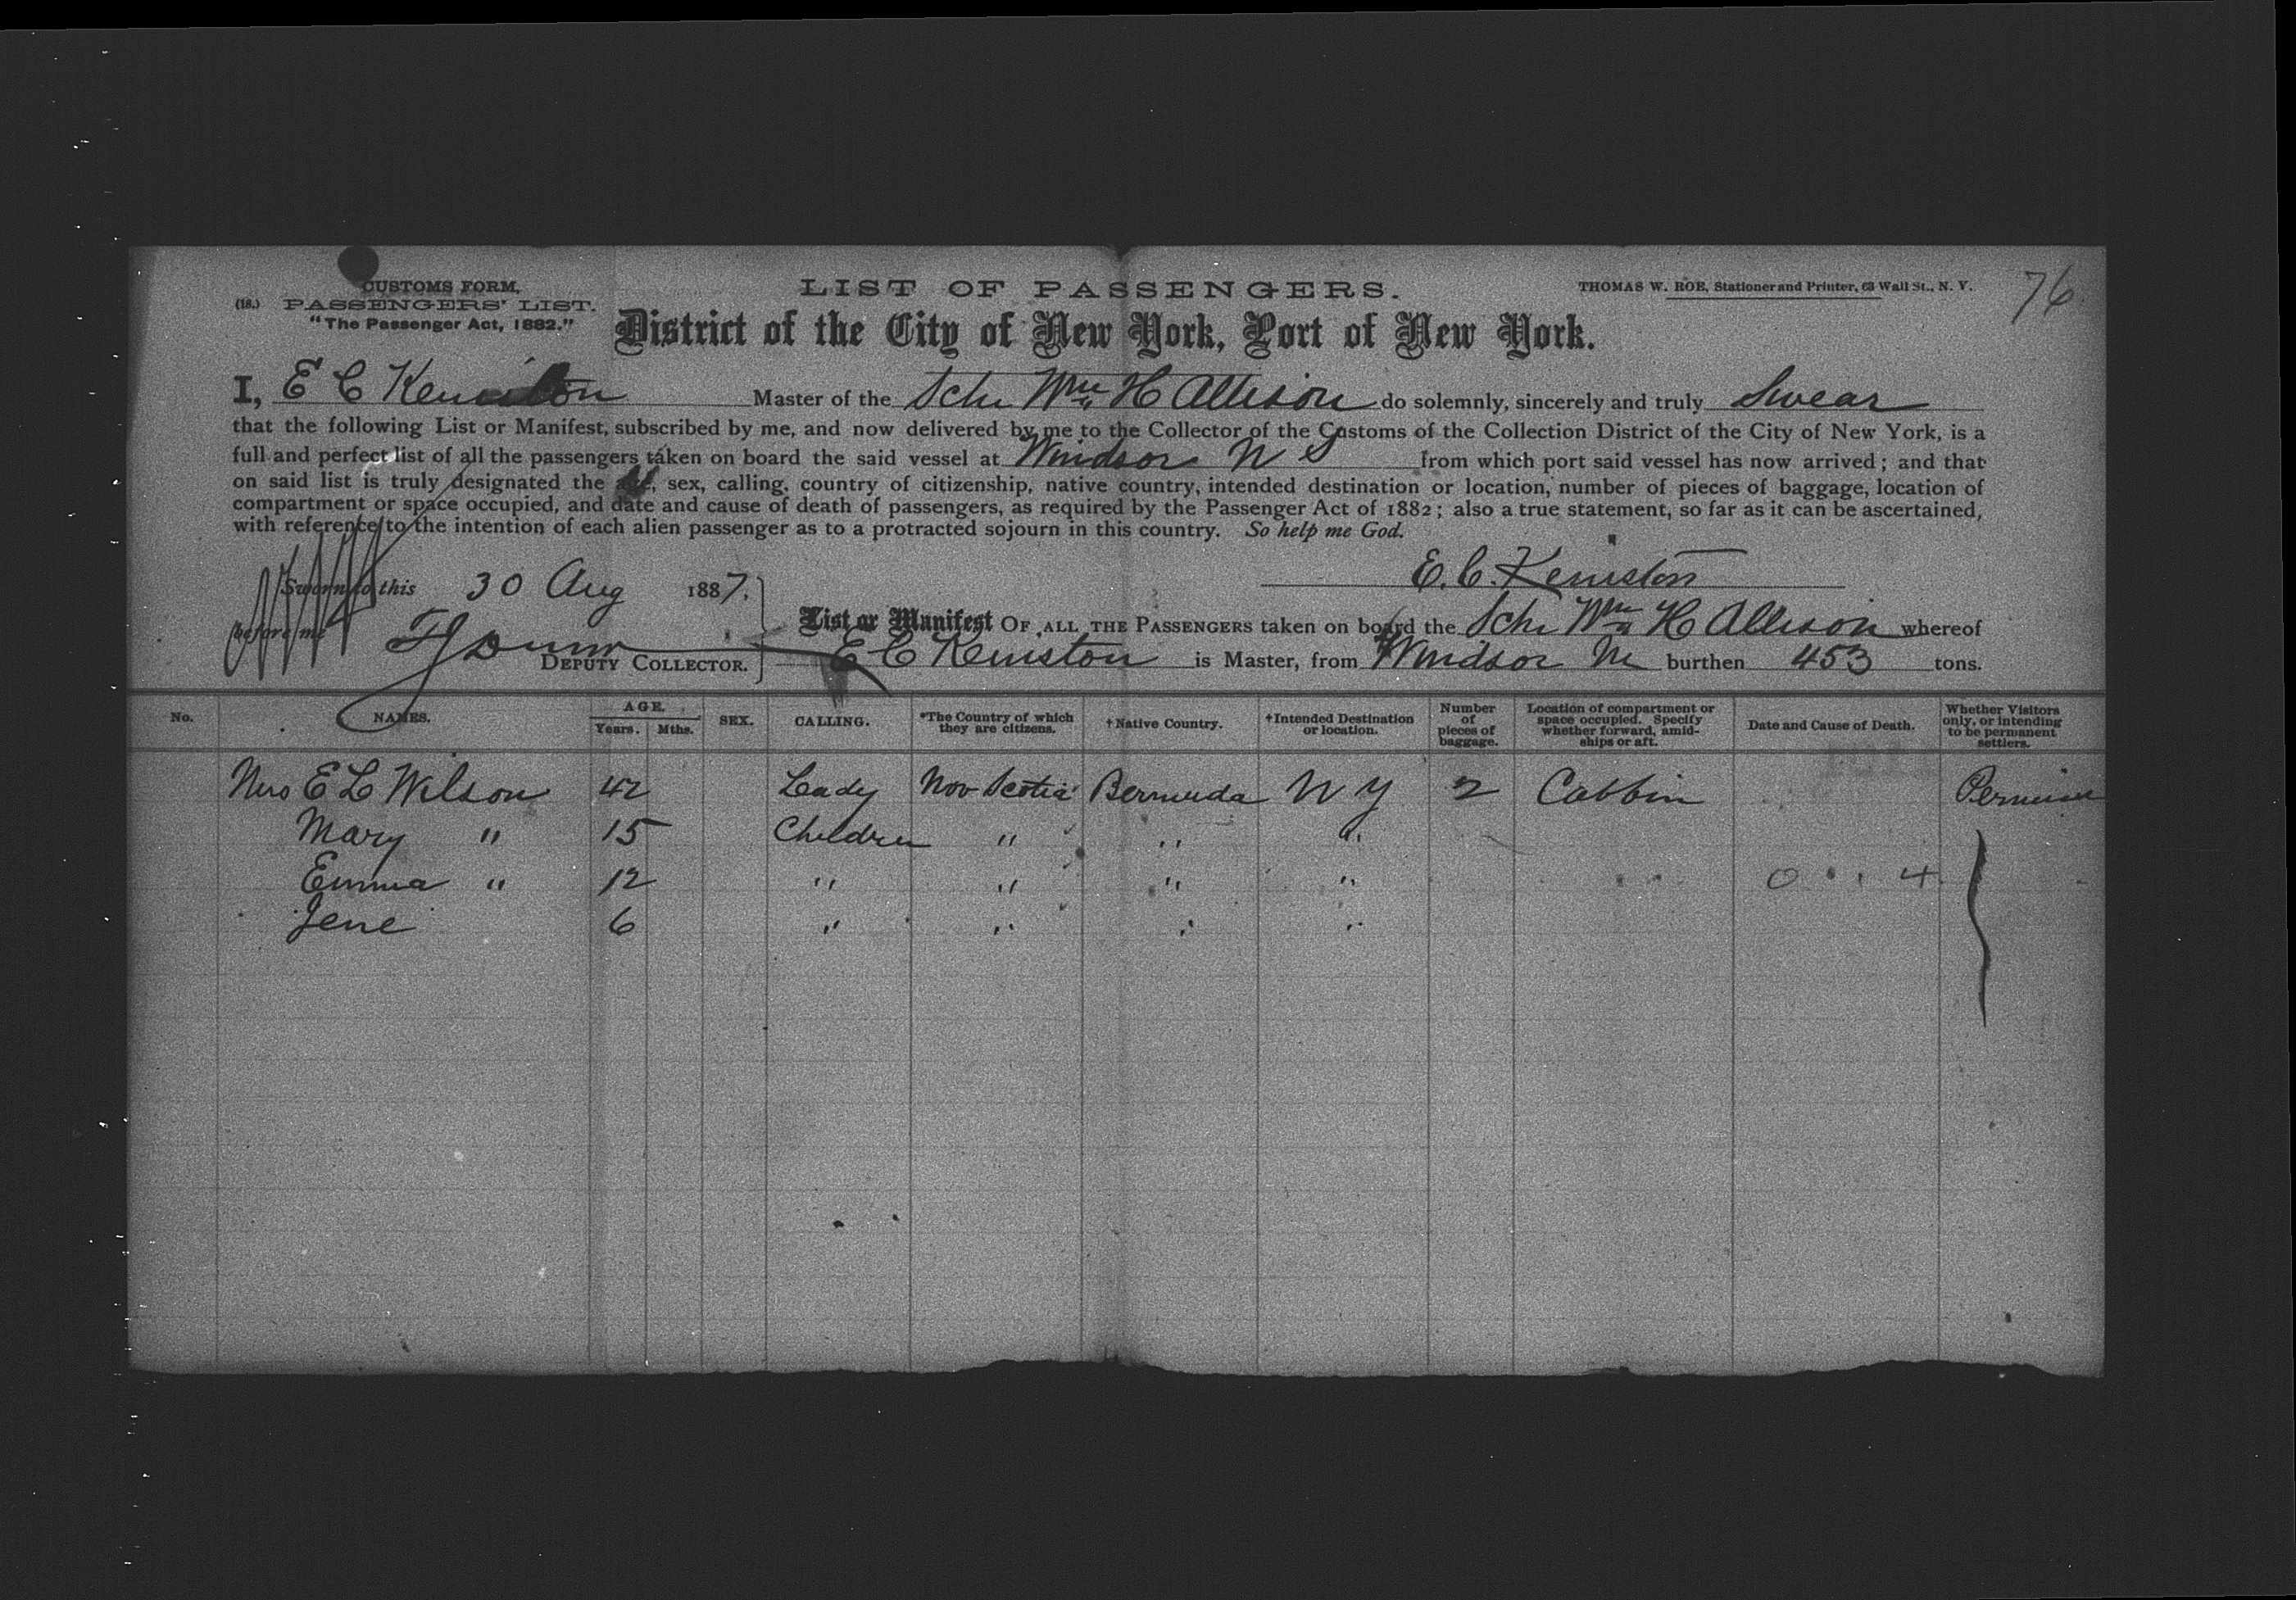 CUSTOMS FORM.
(18.) PASSENGERS' LIST.
"The Passenger Act, 1882."
LIST OF PASSENGERS.
THOMAS W. ROE, Stationer and Printer, 63 Wall St., N. Y.
76
District of the City of New York, Port of New York.
I, E C Keniston Master of the Schr Wm H Allison do solemnly, sincerely and truly Swear
that the following List or Manifest, subscribed by me, and now delivered by me to the Collector of the Customs of the Collection District of the City of New York, is a
full and perfect list of all the passengers taken on board the said vessel at Windsor N S from which port said vessel has now arrived; and that
on said list is truly designated the age, sex, calling, country of citizenship, native country, intended destination or location, number of pieces of baggage, location of
compartment or space occupied, and date and cause of death of passengers, as required by the Passenger Act of 1882; also a true statement, so far as it can be ascertained,
with reference to the intention of each alien passenger as to a protracted sojourn in this country. So help me God.
E. C. Keniston
Sworn to this 30 Aug 1887.
before me
DEPUTY COLLECTOR.
List or Manifest OF ALL THE PASSENGERS taken on board the Schr Wm H Allison whereof
E C Keniston is Master, from Windsor burthen 453 tons.
No. NAMES. AGE. Years. Mths. SEX. CALLING. *The Country of which they are citizens. †Native Country. †Intended Destination or location. Number of pieces of baggage. Location of compartment or space occupied. Specify whether forward, amidships or aft. Date and Cause of Death. Whether Visitors only, or intending to be permanent settlers.
Mrs E L Wilson 42 Lady Nov Scotia Bermuda N Y 2 Cabbin
Mary " 15 Children " " "
Emma " 12 " " " " 0 4
Jene 6 " " " "